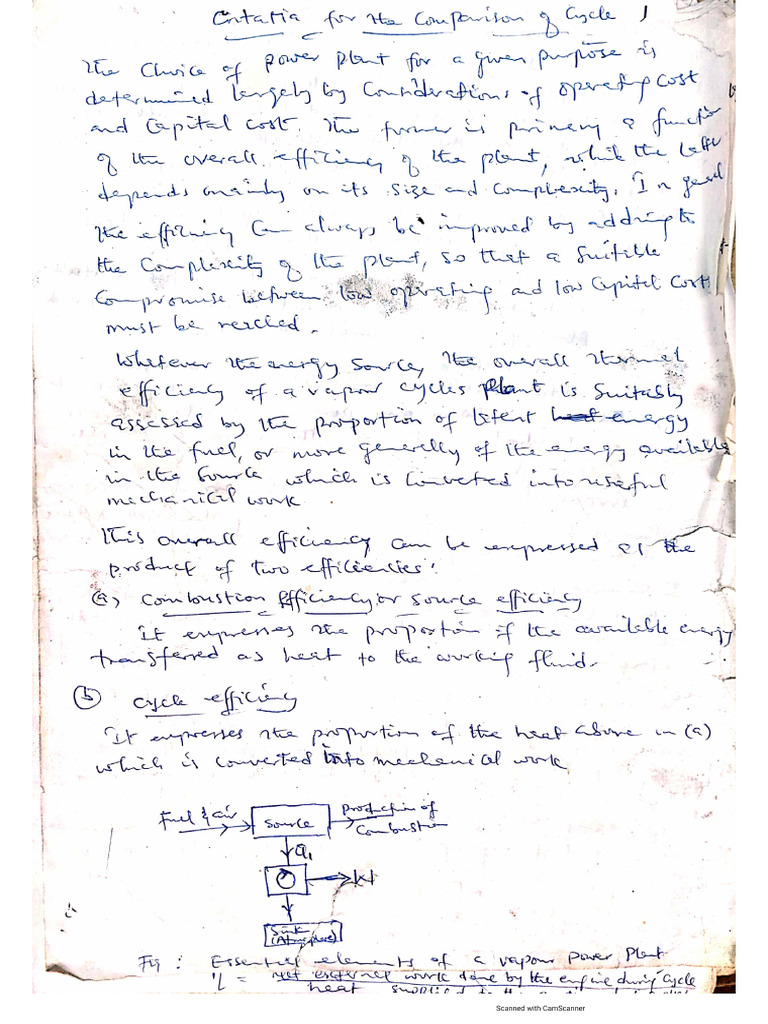 Critaria for the Comparison of Cycle 1
The Choice of power plant for a given purpose is
determined largely by Considerations of operating cost
and Capital cost. The former is primary a function
of the overall efficiency of the plant, while the latter
depends mainly on its size and Complexity. In general
the efficiency Can always be improved by adding to
the Complexity of the plant, so that a Suitable
Compromise between low operating and low Capital Costs
must be reached.
Whatever the energy source, the overall thermal
efficiency of a vapour cycles plant is suitably
assessed by the proportion of latent heat energy
in the fuel, or more generally of the energy available
in the source which is Converted into useful
mechanical work
This overall efficiency can be expressed as the
product of two efficiencies:
(a) Combustion Efficiency or Source efficiency
It expresses the proportion of the available energy
transferred as heat to the working fluid.
(b) Cycle efficiency
It expresses the proportion of the heat above in (a)
which is converted into mechanical work
Fuel & air
Source
Production of
Combustion
Q1
W
Sink
(Atmosphere)
Fig: Essential elements of a vapour power Plant
η = net external work done by the engine during cycle
heat supplied to the
Scanned with CamScanner